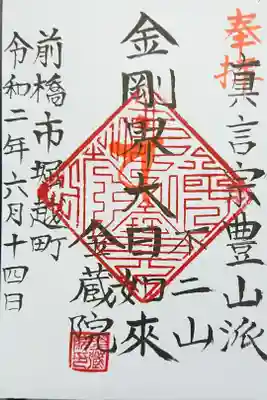 奉拝
真言宗豊山派
不二山
金剛界大日如来
金蔵院
前橋市堀越町
令和二年六月十四日